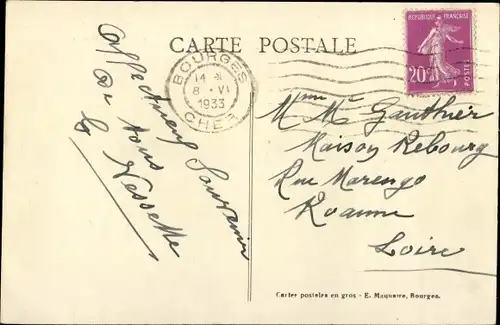 CARTE POSTALE
RÉPUBLIQUE FRANÇAISE
20c
POSTES
BOURGES
14 H
8 - VI
1933
CHER
Affectueux Souvenir
De tous
Mme Gauthier
Maison Rebourg
Rue Marengo
Roanne
Loire
Cartes postales en gros - E. Maquaire, Bourges.